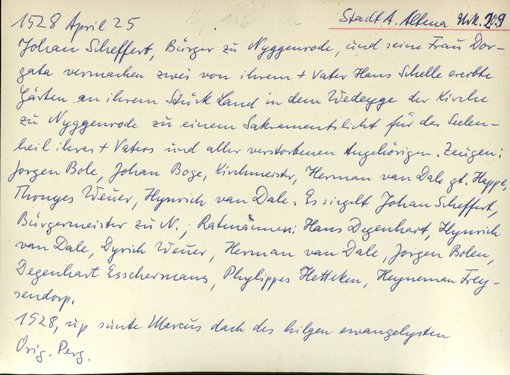 1528 April 25
Stadt A. Altena Urk. 209
Johan Scheffert, Bürger zu Nyggenrode, und seine Frau Dor-
gata vermachen zwei von ihrem + Vater Hans Schelle ererbte
Gärten an ihrem Stück Land in dem Wedeyge der Kirche
zu Nyggenrode zu einem Sakramentslicht für das Seelen-
heil ihres + Vaters und aller verstorbenen Angehörigen. Zeugen:
Jorgen Bole, Johan Boge, Kirchmeister, Herman van Dale gt. Happe,
Thonyes Wever, Hynrich van Dale. Es siegelt Johan Scheffert,
Bürgermeister zu N.; Ratmänner: Hans Degenhart, Hynrich
van Dale, Dyrich Wever, Herman van Dale, Jorgen Bolen,
Degenhart Esschermans, Phylippes Hetteken, Heyneman Frey-
sendorp.
1528, up sunte Marcus dach des hilgen ewangelysten
Orig. Perg.